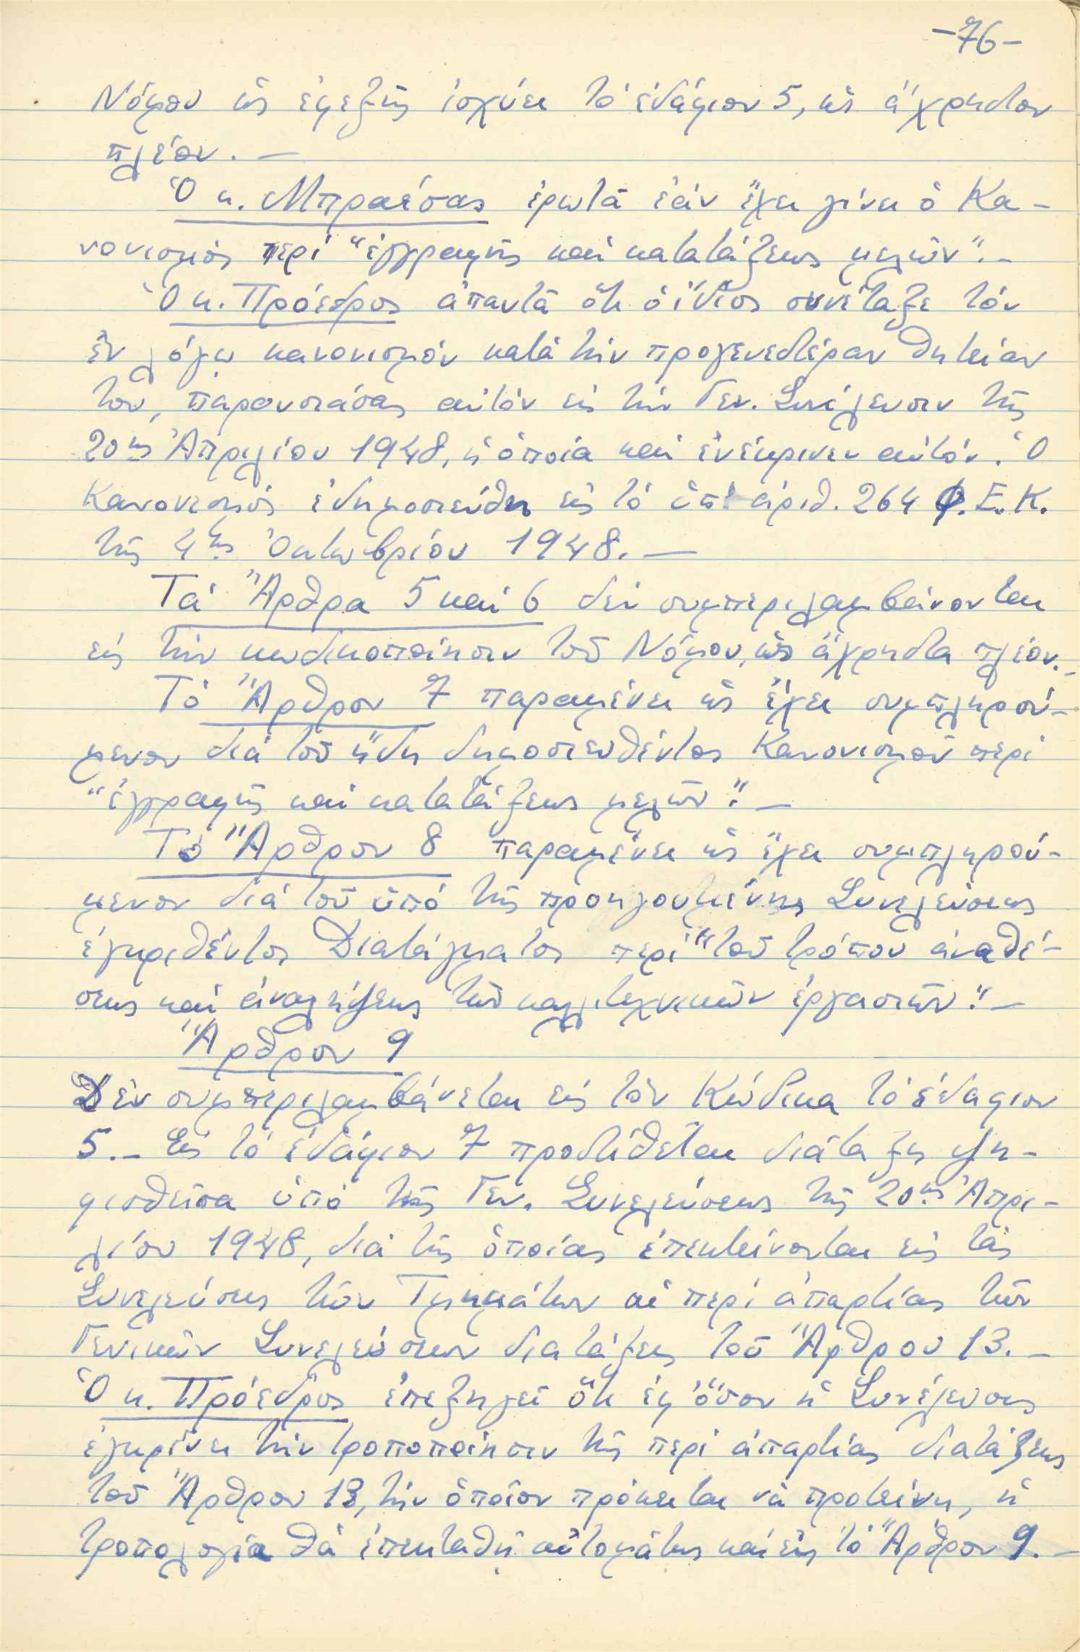 -76-
Νόμου ὡς ἐφεξῆς ἰσχύει τὸ ἐδάφιον 5, ὡς ἄχρηστον
πλέον. —
Ὁ κ. Μπραέσας ἐρωτᾶ ἐάν ἔχει γίνει ὁ Κα-
νονισμός περί "ἐγγραφῆς καί κατατάξεως μελῶν". -
Ὁ κ. Πρόεδρος ἀπαντᾶ ὅτι ὁ ἴδιος συνέταξε τόν
ἐν λόγῳ κανονισμόν κατά τήν προγενεστέραν θητείαν
του, παρουσιάσας αὐτόν εἰς τήν Γεν. Συνέλευσιν τῆς
20ης Ἀπριλίου 1948, ἡ ὁποία καί ἐνέκρινεν αὐτόν. Ὁ
Κανονισμός ἐδημοσιεύθη εἰς τό ὑπ' ἀριθ. 264 Φ.Ε.Κ.
τῆς 4ης Ὀκτωβρίου 1948. —
Τά Ἄρθρα 5 καί 6 δέν συμπεριλαμβάνονται
εἰς τήν κωδικοποίησιν τοῦ Νόμου, ὡς ἄχρηστα πλέον. -
Τό Ἄρθρον 7 παραμένει ὡς ἔχει συμπληρού-
μενον διά τοῦ ἤδη δημοσιευθέντος Κανονισμοῦ περί
"ἐγγραφῆς καί κατατάξεως μελῶν". —
Τό Ἄρθρον 8 παραμένει ὡς ἔχει συμπληρού-
μενον διά τοῦ ὑπό τῆς προηγουμένης Συνελεύσεως
ἐγκριθέντος Διατάγματος περί "τοῦ τρόπου ἀναθέ-
σεως καί ἀναλήψεως τῶν καλλιτεχνικῶν ἐργασιῶν". —
Ἄρθρον 9
Δέν συμπεριλαμβάνεται εἰς τόν Κώδικα τό ἐδάφιον
5. - Εἰς τό ἐδάφιον 7 προστίθεται διάταξις ψη-
φισθεῖσα ὑπό τῆς Γεν. Συνελεύσεως τῆς 20ης Ἀπρι-
λίου 1948, διά τῆς ὁποίας ἐπεκτείνονται εἰς τάς
Συνελεύσεις τῶν Τμημάτων αἱ περί ἀπαρτίας τῶν
Γενικῶν Συνελεύσεων διατάξεις τοῦ Ἄρθρου 13. -
Ὁ κ. Πρόεδρος ἐπεξηγεῖ ὅτι ἐφ' ὅσον ἡ Συνέλευσις
ἐγκρίνει τήν τροποποίησιν τῆς περί ἀπαρτίας διατάξεως
τοῦ Ἄρθρου 13, τήν ὁποίαν πρόκειται νά προτείνῃ, ἡ
τροπολογία θά ἐπεκταθῇ αὐτομάτως καί εἰς τό Ἄρθρον 9. —